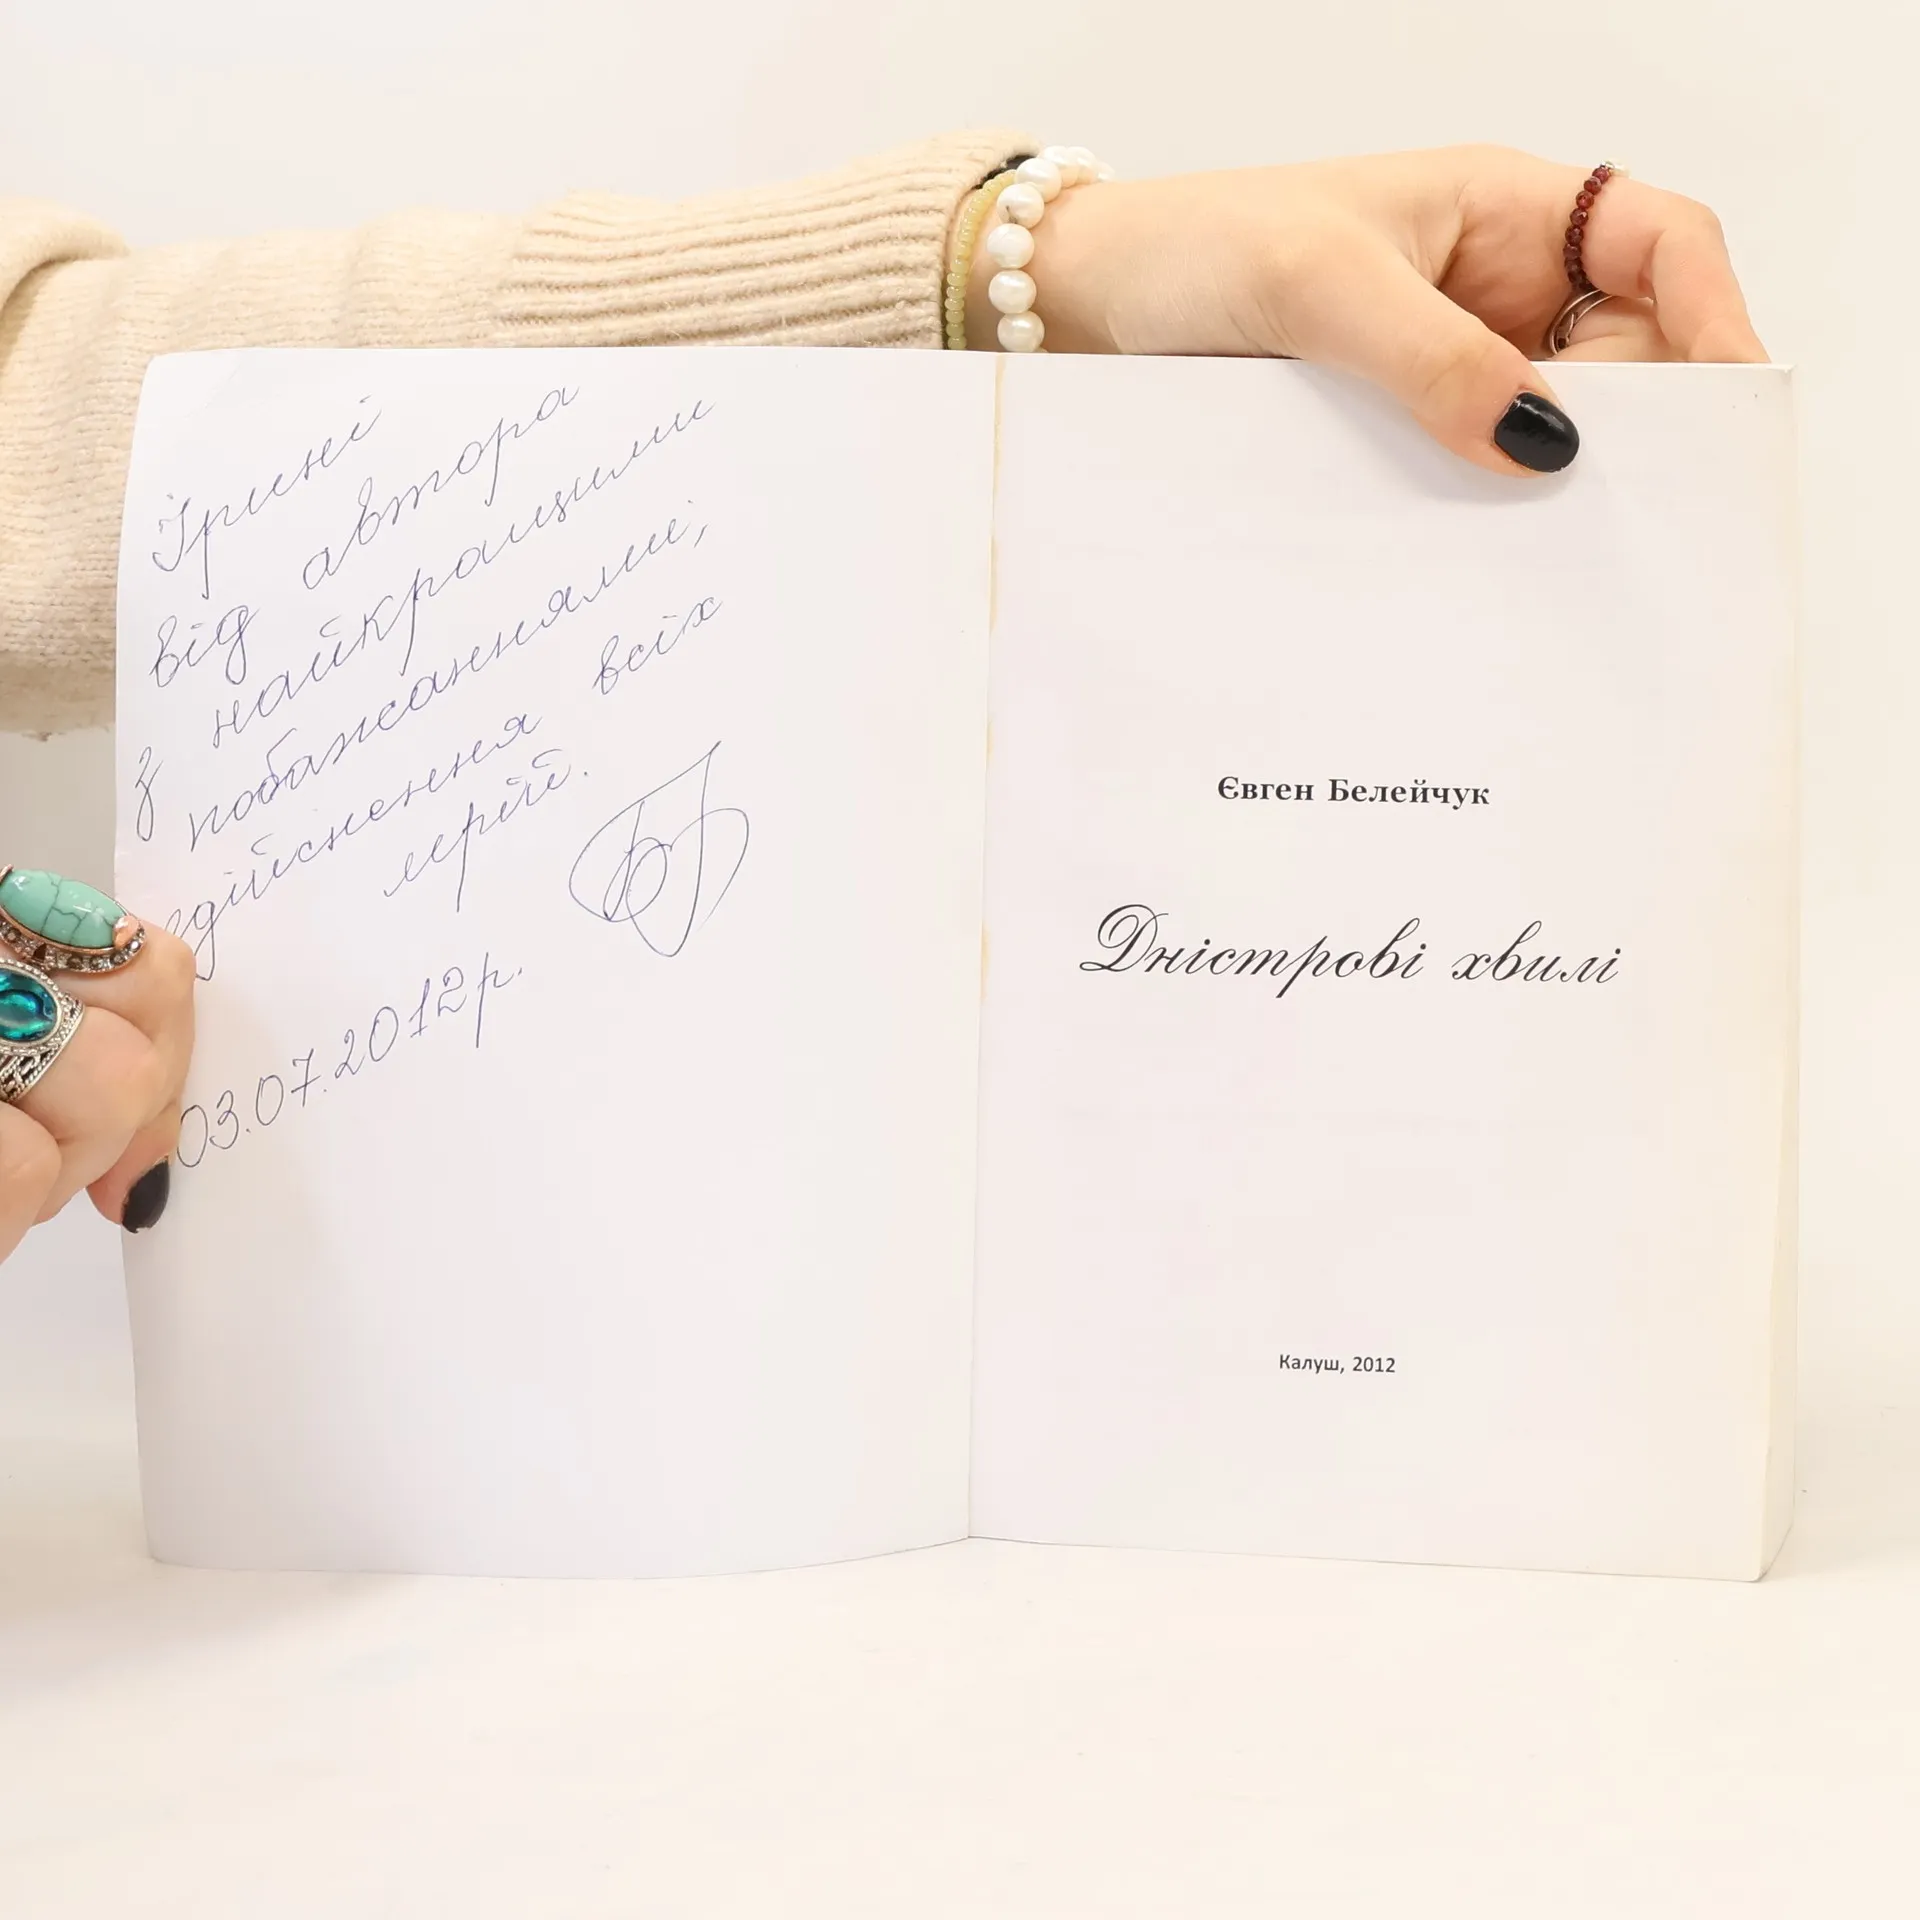 Ірині
від автора
з найкращими
побажаннями,
здійснення всіх
мрій.
03.07.2012р.
Євген Белейчук
Дністрові хвилі
Калуш, 2012